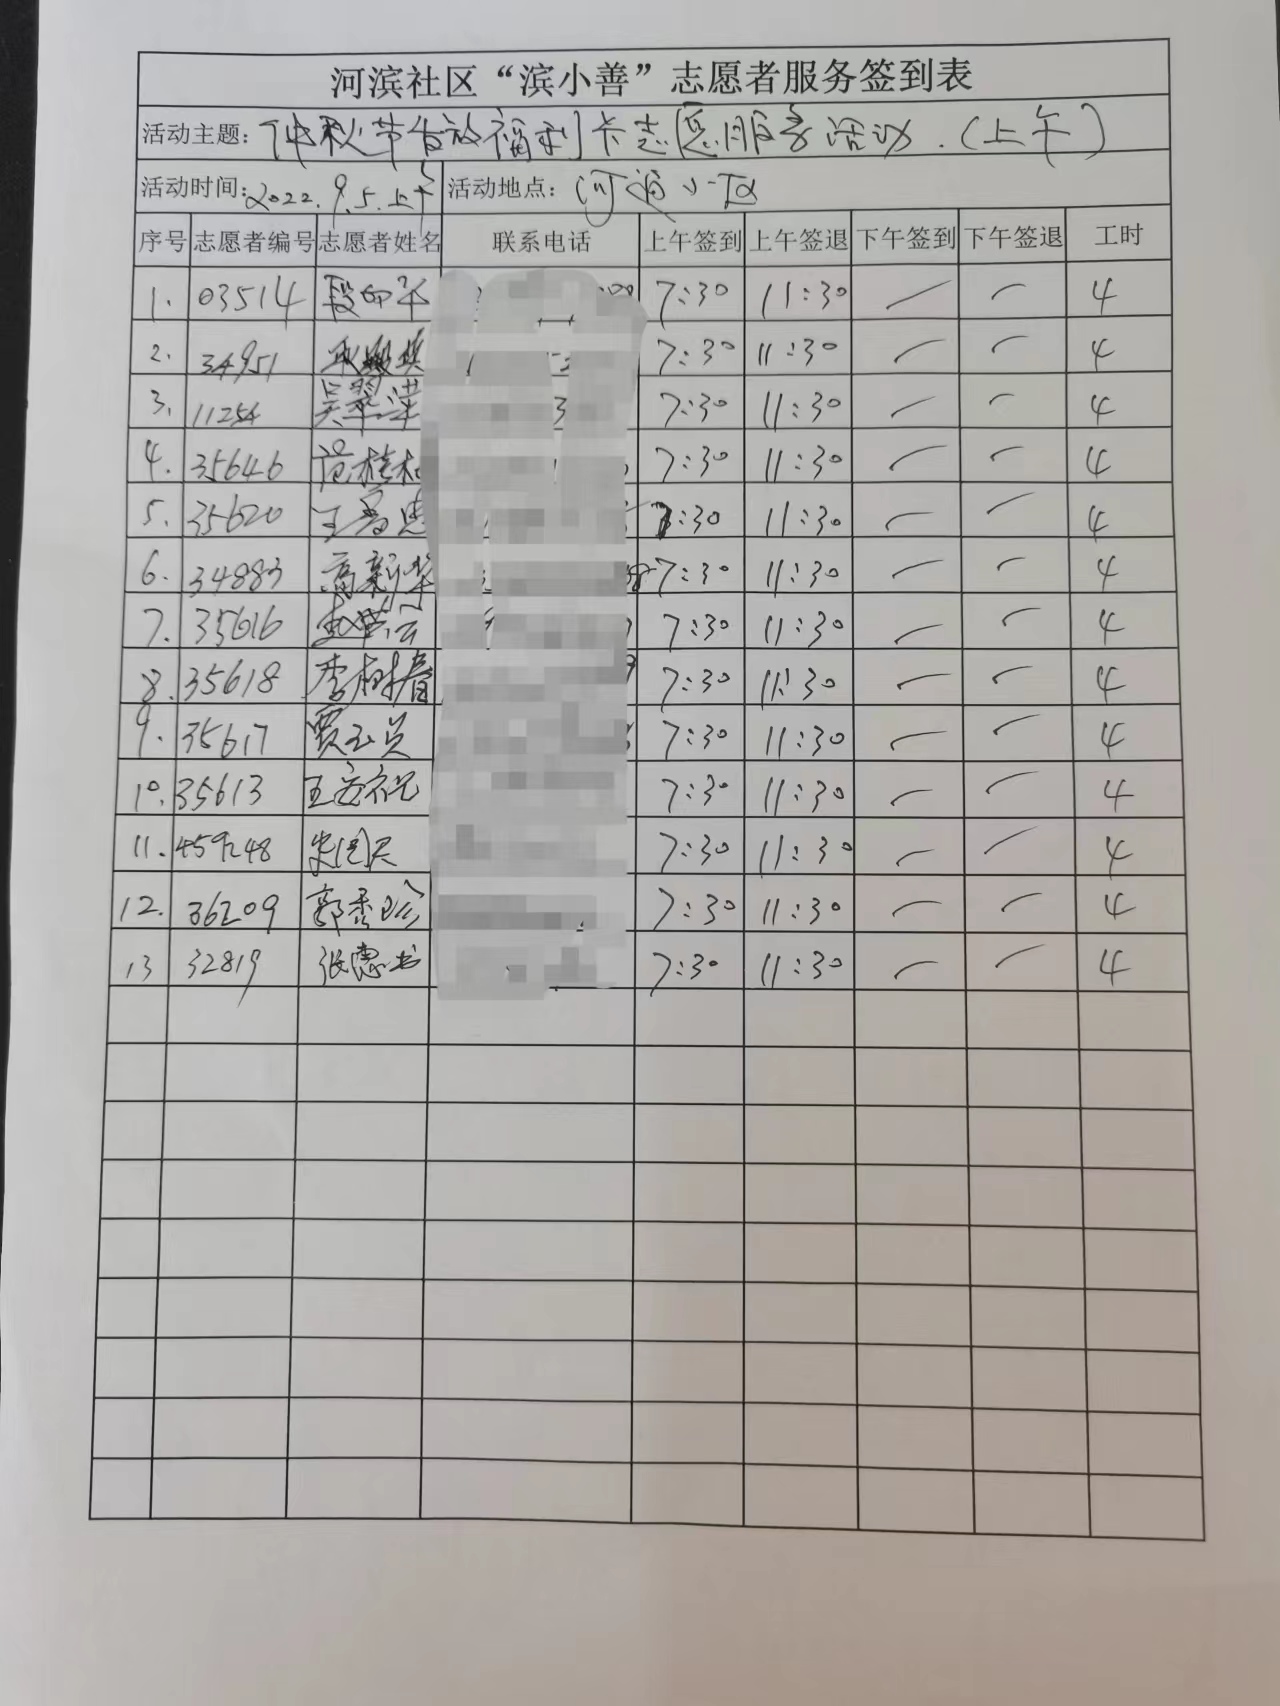 河滨社区“滨小善”志愿者服务签到表
活动主题：仲秋节发放福利卡志愿服务活动.(上午)
活动时间:2022.9.5.上午 活动地点：河滨小区
序号 志愿者编号 志愿者姓名 联系电话 上午签到 上午签退 下午签到 下午签退 工时
1. 03514 段 7:30 11:30 — — 4
2. 34951 7:30 11:30 — — 4
3. 11254 吴翠萍 7:30 11:30 — — 4
4. 35646 范桂 7:30 11:30 — — 4
5. 35620 王 :30 11:30 — — 4
6. 34883 高新华 7:30 11:30 — — 4
7. 35616 赵 云 7:30 11:30 — — 4
8. 35618 李树春 7:30 11:30 — — 4
9. 35617 贾玉 7:30 11:30 — — 4
10. 35613 王 7:30 11:30 — — 4
11. 459248 7:30 11:30 — — 4
12. 36209 郭秀珍 7:30 11:30 — — 4
13 32819 张惠书 7:30 11:30 — — 4